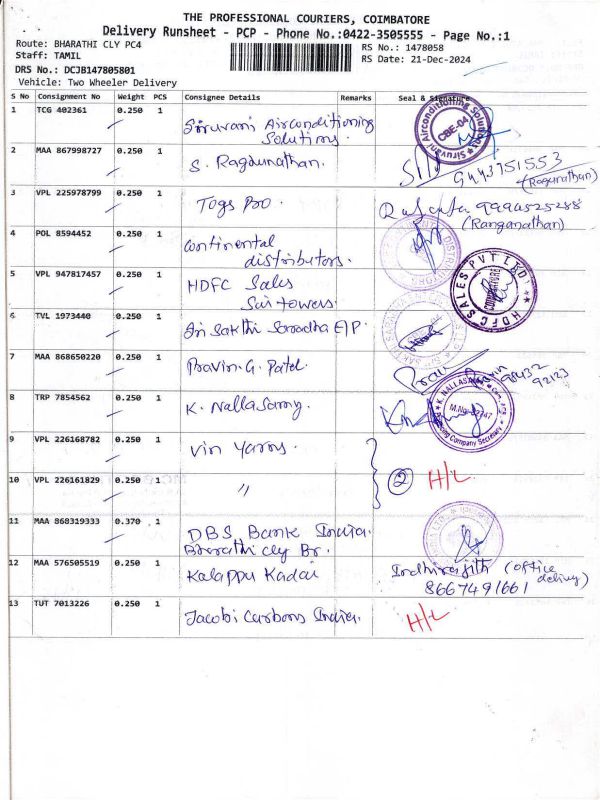 THE PROFESSIONAL COURIERS, COIMBATORE
Delivery Runsheet - PCP - Phone No.:0422-3505555 - Page No.:1
Route: BHARATHI CLY PC4
RS No.: 1478058
Staff: TAMIL
RS Date: 21-Dec-2024
DRS No.: DCJB147805801
Vehicle: Two Wheeler Delivery
S No Consignment No Weight PCS Consignee Details Remarks Seal & Signature
1 TCG 402361 0.250 1 Siruvani Airconditioning Solutions.
Siruvani Airconditioning Solutions CBE-04
2 MAA 867998727 0.250 1 S. Ragunathan.
9443751553
(Ragunathan)
3 VPL 225978799 0.250 1 Togs Pro.
9994525288
(Ranganathan)
4 POL 8594452 0.250 1 Continental distributors.
5 VPL 947817457 0.250 1 HDFC Sales Sai towers.
HDFC SALES PVT LTD COIMBATORE
6 TVL 1973440 0.250 1 Sri Sakthi Sarodha E/P.
7 MAA 868650220 0.250 1 Pravin. G. Patel
Pravin 98432 92123
8 TRP 7854562 0.250 1 K. NallaSamy.
K. NALLASAMY Company Secretary
9 VPL 226168782 0.250 1 Vin Yarns.
10 VPL 226161829 0.250 1 "
2 H/L
11 MAA 868319333 0.370 1 DBS Bank India. Bharathi cly Br.
12 MAA 576505519 0.250 1 Kalappu Kadai
Indhirajith (office delivery)
8667491661
13 TUT 7013226 0.250 1 Jacobi Carbons India.
H/L